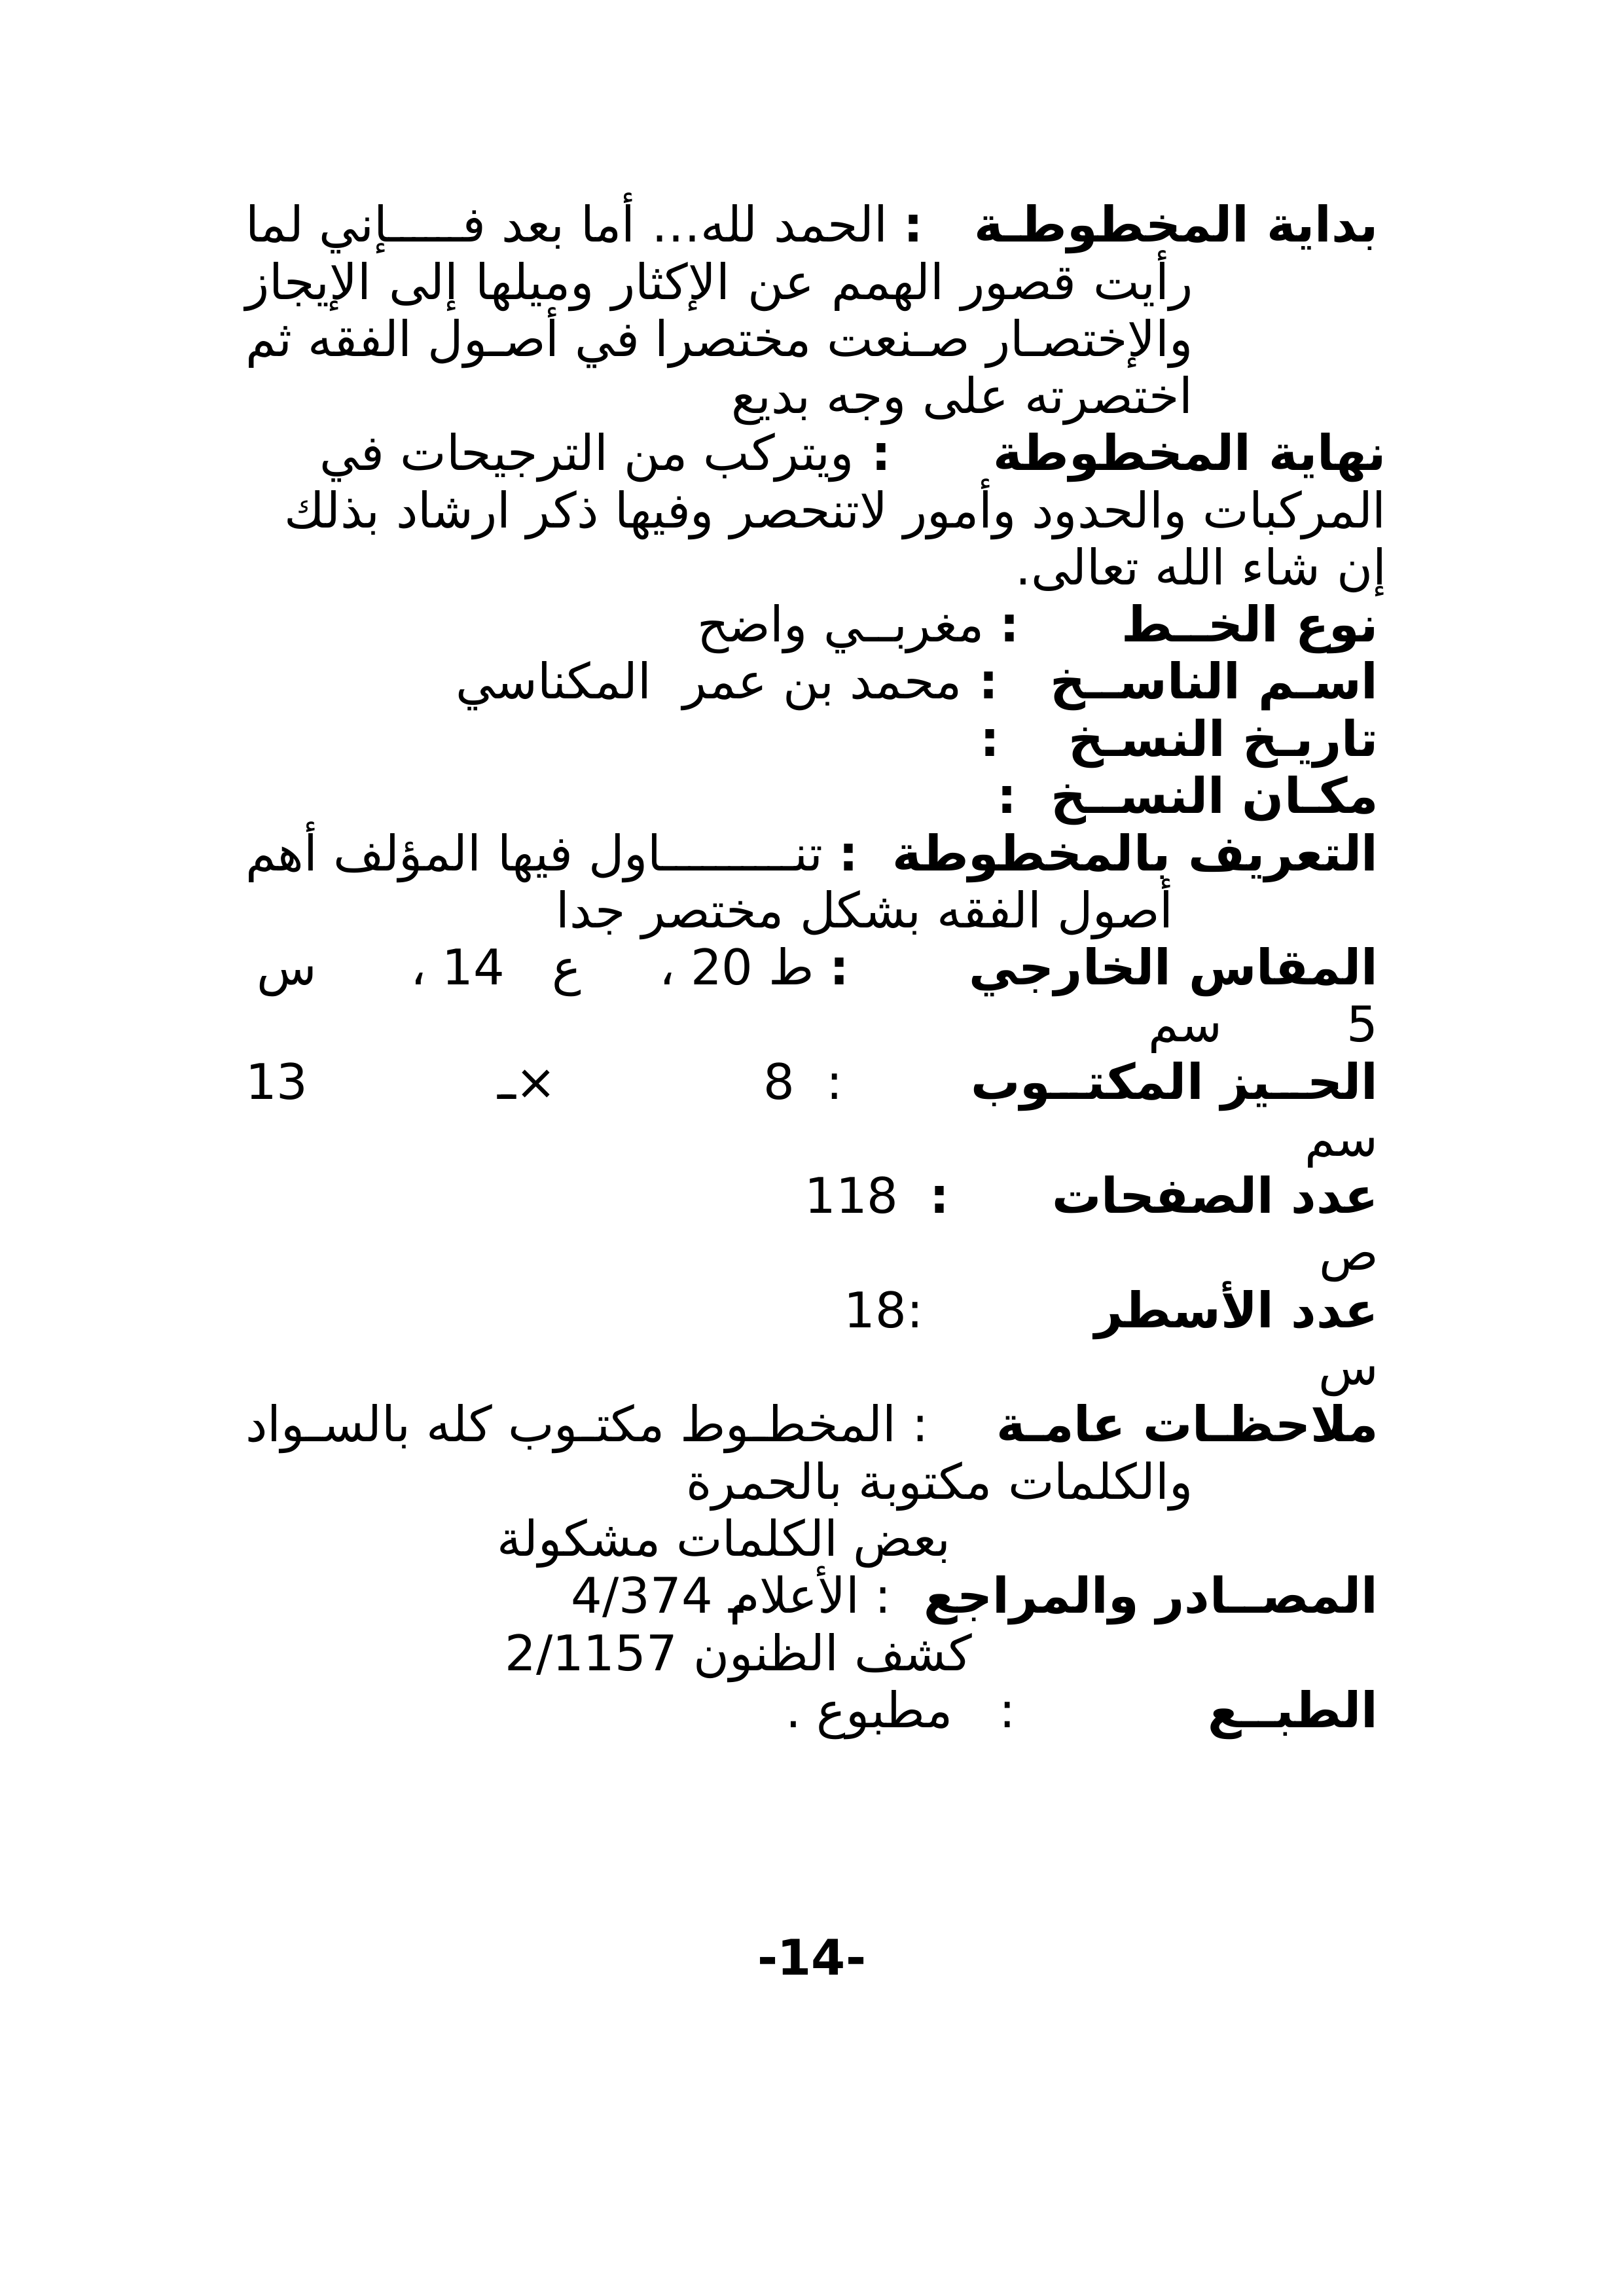 بداية المخطوطـة : الحمد لله... أما بعد فـــــإني لما
رأيت قصور الهمم عن الإكثار وميلها إلى الإيجاز
والإختصـار صـنعت مختصرا في أصـول الفقه ثم
اختصرته على وجه بديع
نهاية المخطوطة : ويتركب من الترجيحات في
المركبات والحدود وأمور لاتنحصر وفيها ذكر ارشاد بذلك
إن شاء الله تعالى.
نوع الخــط : مغربــي واضح
اسـم الناســخ : محمد بن عمر المكناسي
تاريـخ النسـخ :
مكـان النســخ :
التعريف بالمخطوطة : تنــــــــــاول فيها المؤلف أهم
أصول الفقه بشكل مختصر جدا
المقاس الخارجي : ط 20 ، ع 14 ، س
5 سم
الحــيز المكتــوب : 8 ×ـ 13
سم
عدد الصفحات : 118
ص
عدد الأسطر :18
س
ملاحظـات عامـة : المخطـوط مكتـوب كله بالسـواد
والكلمات مكتوبة بالحمرة
بعض الكلمات مشكولة
المصــادر والمراجع : الأعلام 4/374
كشف الظنون 2/1157
الطبــع : مطبوع .
-14-